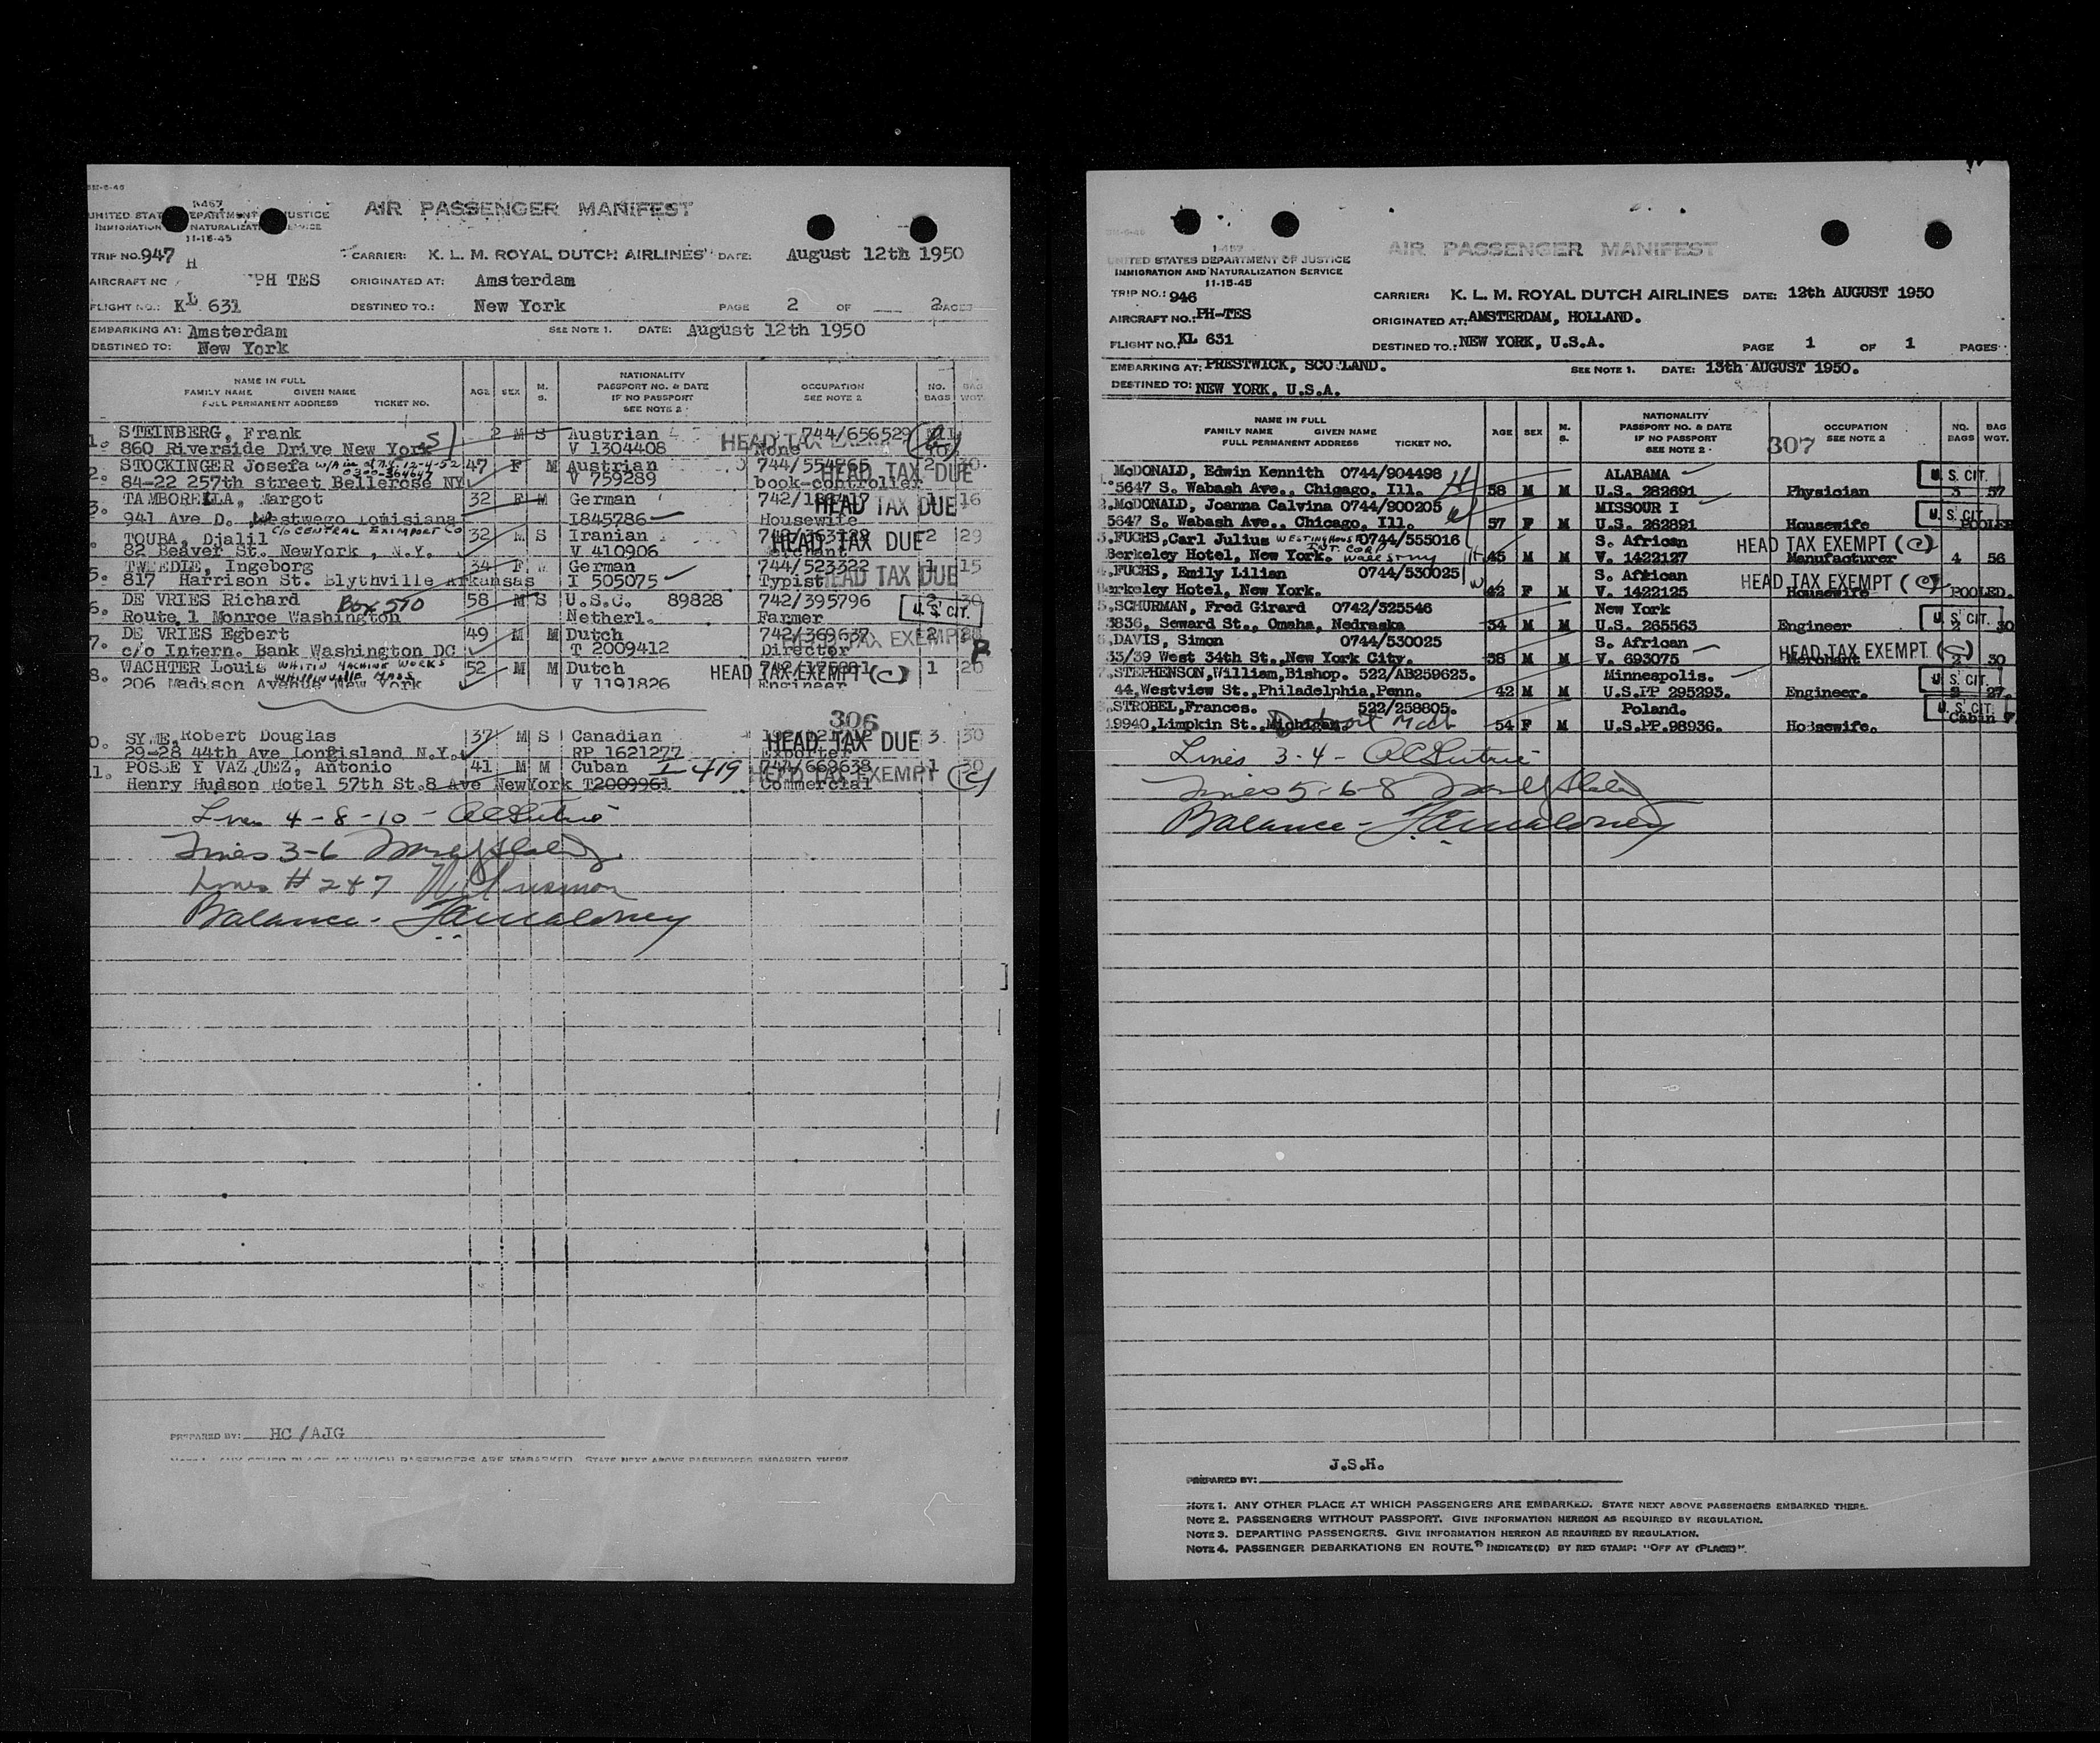 AIR PASSENGER MANIFEST
UNITED STATES DEPARTMENT OF JUSTICE
IMMIGRATION NATURALIZATION SERVICE
11-15-45
TRIP NO. 947 H
CARRIER: K. L. M. ROYAL DUTCH AIRLINES DATE: August 12th 1950
AIRCRAFT NO PH TES ORIGINATED AT: Amsterdam
FLIGHT NO.: KL 631 DESTINED TO.: New York PAGE 2 OF 2 PAGES
EMBARKING AT: Amsterdam SEE NOTE 1. DATE: August 12th 1950
DESTINED TO: New York
NAME IN FULL
FAMILY NAME GIVEN NAME
FULL PERMANENT ADDRESS TICKET NO.
AGE SEX M. S.
NATIONALITY
PASSPORT NO. & DATE
IF NO PASSPORT
SEE NOTE 2
OCCUPATION
SEE NOTE 2
NO. BAGS
BAG WGT.
1. STEINBERG, Frank 2 M S Austrian 744/656529
860 Riverside Drive New York V 1304408 None HEAD TAX
2. STOCKINGER Josefa 47 F M Austrian 744/554765 2 30
84-22 257th street Bellerose NY V 759289 book-controller HEAD TAX DUE
3. TAMBORELLA, Margot 32 F M German 1 16
941 Ave D. Westwego Louisiana I845786 Housewife HEAD TAX DUE
TOUBA, Djalil C/O CENTRAL EXIMPORT CO 32 M S Iranian 2 29
82 Beaver St. NewYork , N.Y. V 410906 HEAD TAX DUE
5. TWEEDIE, Ingeborg 34 F M German 744/523322 1 15
817 Harrison St. Blythville Arkansas I 505075 Typist HEAD TAX DUE
6. DE VRIES Richard Box 570 58 M S U.S.C. 89828 742/395796 2 30
Route 1 Monroe Washington Netherl. Farmer U.S. CIT.
7. DE VRIES Egbert 49 M M Dutch 742/369637 2
c/o Intern. Bank Washington DC T 2009412 Director HEAD TAX EXEMPT
8. WACHTER Louis WHITIN MACHINE WORKS 52 M M Dutch 1 20
WHITINVILLE MASS
206 Madison Avenue New York V 1191826 Engineer HEAD TAX EXEMPT (C)
306
SYME, Robert Douglas 37 M S Canadian 3 30
29-28 44th Ave Longisland N.Y. RP 1621277 Exporter HEAD TAX DUE
POSSE Y VAZQUEZ, Antonio 41 M M Cuban I-419 744/668638 1 30
Henry Hudson Hotel 57th St.8 Ave NewYork T2009961 Commercial HEAD TAX EXEMPT (C)
Lines 4-8-10 -
Lines 3-6
Lines # 2 & 7
Balance -
PREPARED BY: HC/AJG
NOTE 1. ANY OTHER PLACE AT WHICH PASSENGERS ARE EMBARKED. STATE NEXT ABOVE PASSENGERS EMBARKED THERE.
AIR PASSENGER MANIFEST
UNITED STATES DEPARTMENT OF JUSTICE
IMMIGRATION AND NATURALIZATION SERVICE
11-15-45
TRIP NO.: 946 CARRIER: K. L. M. ROYAL DUTCH AIRLINES DATE: 12th AUGUST 1950
AIRCRAFT NO.: PH-TES ORIGINATED AT: AMSTERDAM, HOLLAND.
FLIGHT NO.: KL 631 DESTINED TO.: NEW YORK, U.S.A. PAGE 1 OF 1 PAGES
EMBARKING AT: PRESTWICK, SCOTLAND. SEE NOTE 1. DATE: 13th AUGUST 1950.
DESTINED TO: NEW YORK, U.S.A.
NAME IN FULL
FAMILY NAME GIVEN NAME
FULL PERMANENT ADDRESS TICKET NO.
AGE SEX M. S.
NATIONALITY
PASSPORT NO. & DATE
IF NO PASSPORT
SEE NOTE 2
OCCUPATION
SEE NOTE 2
NO. BAGS
BAG WGT.
307
McDONALD, Edwin Kennith 0744/904498 ALABAMA U.S. CIT.
5647 S. Wabash Ave., Chigago, Ill. 58 M M U.S. 282691 Physician 3 57
2. McDONALD, Joanna Calvina 0744/900205 MISSOURI U.S. CIT.
5647 S. Wabash Ave., Chicago, Ill. 57 F M U.S. 262891 Housewife POOLED
3. FUCHS, Carl Julius WESTINGHOUSE INT. CORP 0744/555016 S. African HEAD TAX EXEMPT (C)
Berkeley Hotel, New York. 45 M M V. 1422127 Manufacturer 4 56
4. FUCHS, Emily Lilian 0744/530025 S. African HEAD TAX EXEMPT (C)
Berkeley Hotel, New York. 42 F M V. 1422125 Housewife POOLED.
5. SCHURMAN, Fred Girard 0742/525546 New York U.S. CIT.
3836, Seward St., Omaha, Nedraska 34 M M U.S. 265563 Engineer 30
DAVIS, Simon 0744/530025 S. African HEAD TAX EXEMPT (C)
33/39 West 34th St., New York City. 38 M M V. 693075 Merchant 2 30
7. STEPHENSON, William, Bishop. 522/AB259623. Minneapolis. U.S. CIT.
44, Westview St., Philadelphia, Penn. 42 M M U.S.PP 295293. Engineer. 2 27.
STROBEL, Frances. 522/258805. Poland. U.S. CIT.
19940, Limpkin St., Michigan. Detroit Mich 54 F M U.S.PP.98936. Housewife. Cabin
Lines 3-4 -
Lines 5-6-8
Balance -
J.S.H.
PREPARED BY:
NOTE 1. ANY OTHER PLACE AT WHICH PASSENGERS ARE EMBARKED. STATE NEXT ABOVE PASSENGERS EMBARKED THERE.
NOTE 2. PASSENGERS WITHOUT PASSPORT. GIVE INFORMATION HEREON AS REQUIRED BY REGULATION.
NOTE 3. DEPARTING PASSENGERS. GIVE INFORMATION HEREON AS REQUIRED BY REGULATION.
NOTE 4. PASSENGER DEBARKATIONS EN ROUTE. INDICATE(D) BY RED STAMP: "OFF AT (PLACE)".